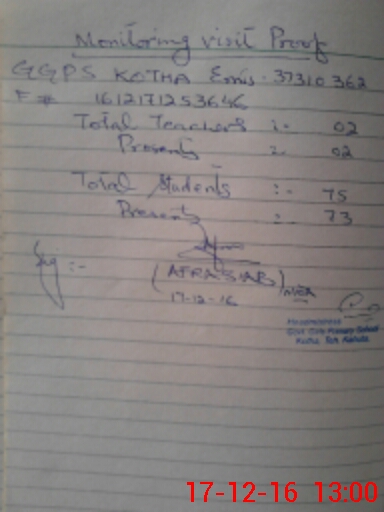 Monitoring visit Proof
GGPS KOTHA Emis. 37310362
F # 1612171253646
Total Teachers :- 02
Presents :- 02
Total Students :- 75
Presents :- 73
Sig :-
(AFRASIAB) MEA
17-12-16
Headmistress
Govt. Girls Primary School
Kotha, Teh.
17-12-16 13:00